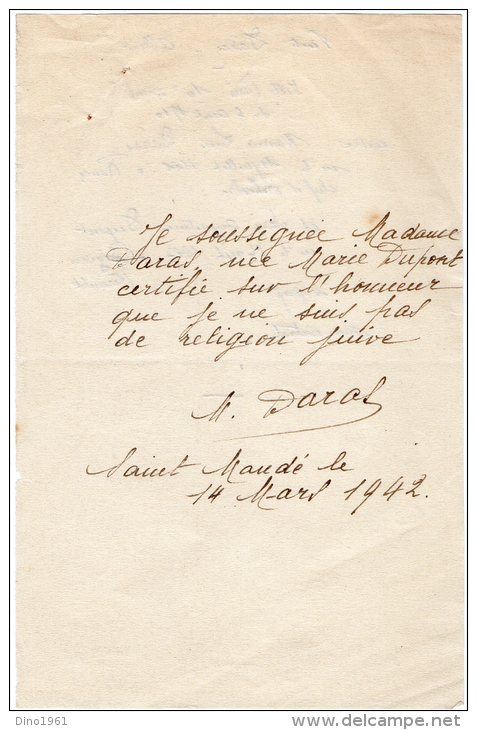 Je soussignée Madame
Daras, née Marie Dupont
certifie sur l'honneur
que je ne suis pas
de religion juive
M. Daras
Saint Mandé le
14 Mars 1942.
Dino1961
www.delcampe.net